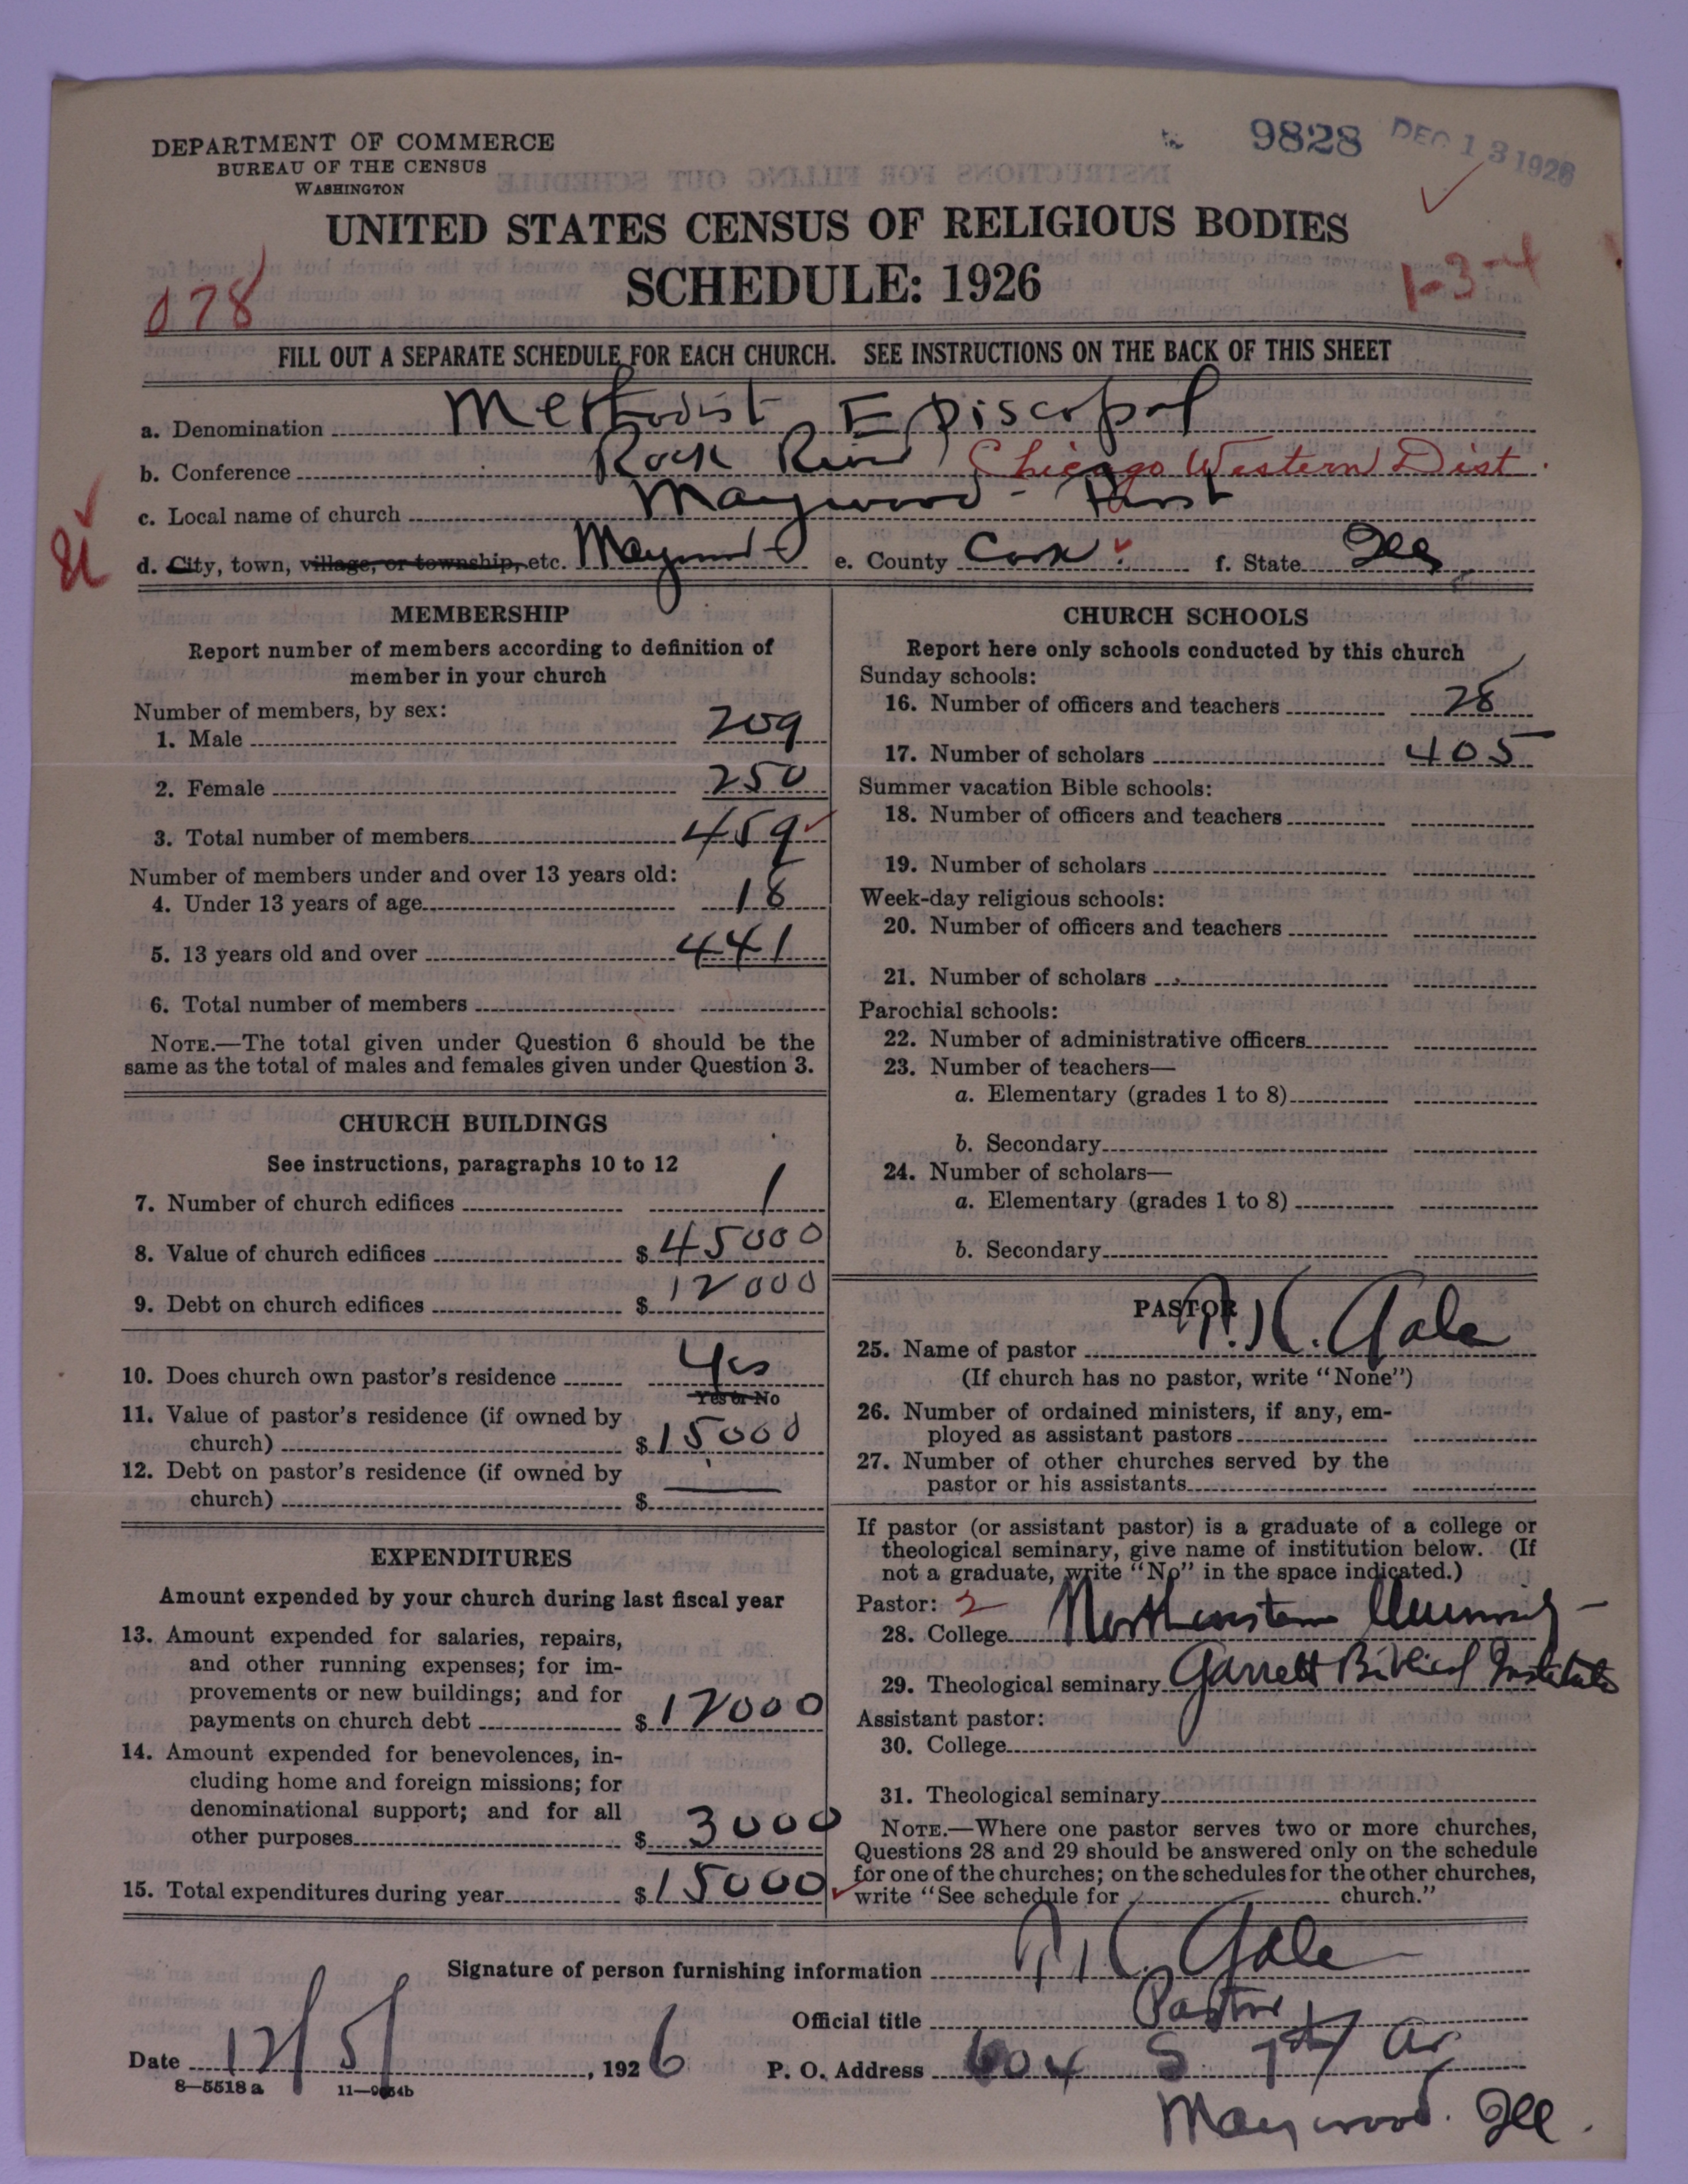 DEPARTMENT OF COMMERCE
BUREAU OF THE CENSUS
WASHINGTON
9828 DEC 13 1926
UNITED STATES CENSUS OF RELIGIOUS BODIES
SCHEDULE: 1926
078
1-3-4
FILL OUT A SEPARATE SCHEDULE FOR EACH CHURCH. SEE INSTRUCTIONS ON THE BACK OF THIS SHEET
a. Denomination Methodist Episcopal
b. Conference Rock River Chicago Western Dist.
c. Local name of church Maywood - First
d. City, town, village, or township, etc. Maywood e. County Cook f. State Ill
MEMBERSHIP
Report number of members according to definition of
member in your church
Number of members, by sex:
1. Male 209
2. Female 250
3. Total number of members 459
Number of members under and over 13 years old:
4. Under 13 years of age 18
5. 13 years old and over 441
6. Total number of members
NOTE.—The total given under Question 6 should be the
same as the total of males and females given under Question 3.
CHURCH BUILDINGS
See instructions, paragraphs 10 to 12
7. Number of church edifices 1
8. Value of church edifices $45000
9. Debt on church edifices $12000
10. Does church own pastor's residence Yes
Yes or No
11. Value of pastor's residence (if owned by
church) $15000
12. Debt on pastor's residence (if owned by
church) $ —
EXPENDITURES
Amount expended by your church during last fiscal year
13. Amount expended for salaries, repairs,
and other running expenses; for im-
provements or new buildings; and for
payments on church debt $12000
14. Amount expended for benevolences, in-
cluding home and foreign missions; for
denominational support; and for all
other purposes $3000
15. Total expenditures during year $15000
CHURCH SCHOOLS
Report here only schools conducted by this church
Sunday schools:
16. Number of officers and teachers 28
17. Number of scholars 405
Summer vacation Bible schools:
18. Number of officers and teachers
19. Number of scholars
Week-day religious schools:
20. Number of officers and teachers
21. Number of scholars
Parochial schools:
22. Number of administrative officers
23. Number of teachers—
a. Elementary (grades 1 to 8)
b. Secondary
24. Number of scholars—
a. Elementary (grades 1 to 8)
b. Secondary
PASTOR
25. Name of pastor Gale
(If church has no pastor, write "None")
26. Number of ordained ministers, if any, em-
ployed as assistant pastors
27. Number of other churches served by the
pastor or his assistants
If pastor (or assistant pastor) is a graduate of a college or
theological seminary, give name of institution below. (If
not a graduate, write "No" in the space indicated.)
Pastor: 2
28. College Northwestern University
29. Theological seminary Garrett Biblical Institute
Assistant pastor:
30. College
31. Theological seminary
NOTE.—Where one pastor serves two or more churches,
Questions 28 and 29 should be answered only on the schedule
for one of the churches; on the schedules for the other churches,
write "See schedule for church."
Signature of person furnishing information Gale
Official title Pastor
Date 12/5/, 1926 P. O. Address 604 S 7th Av
8—5518 a
Maywood. Ill.